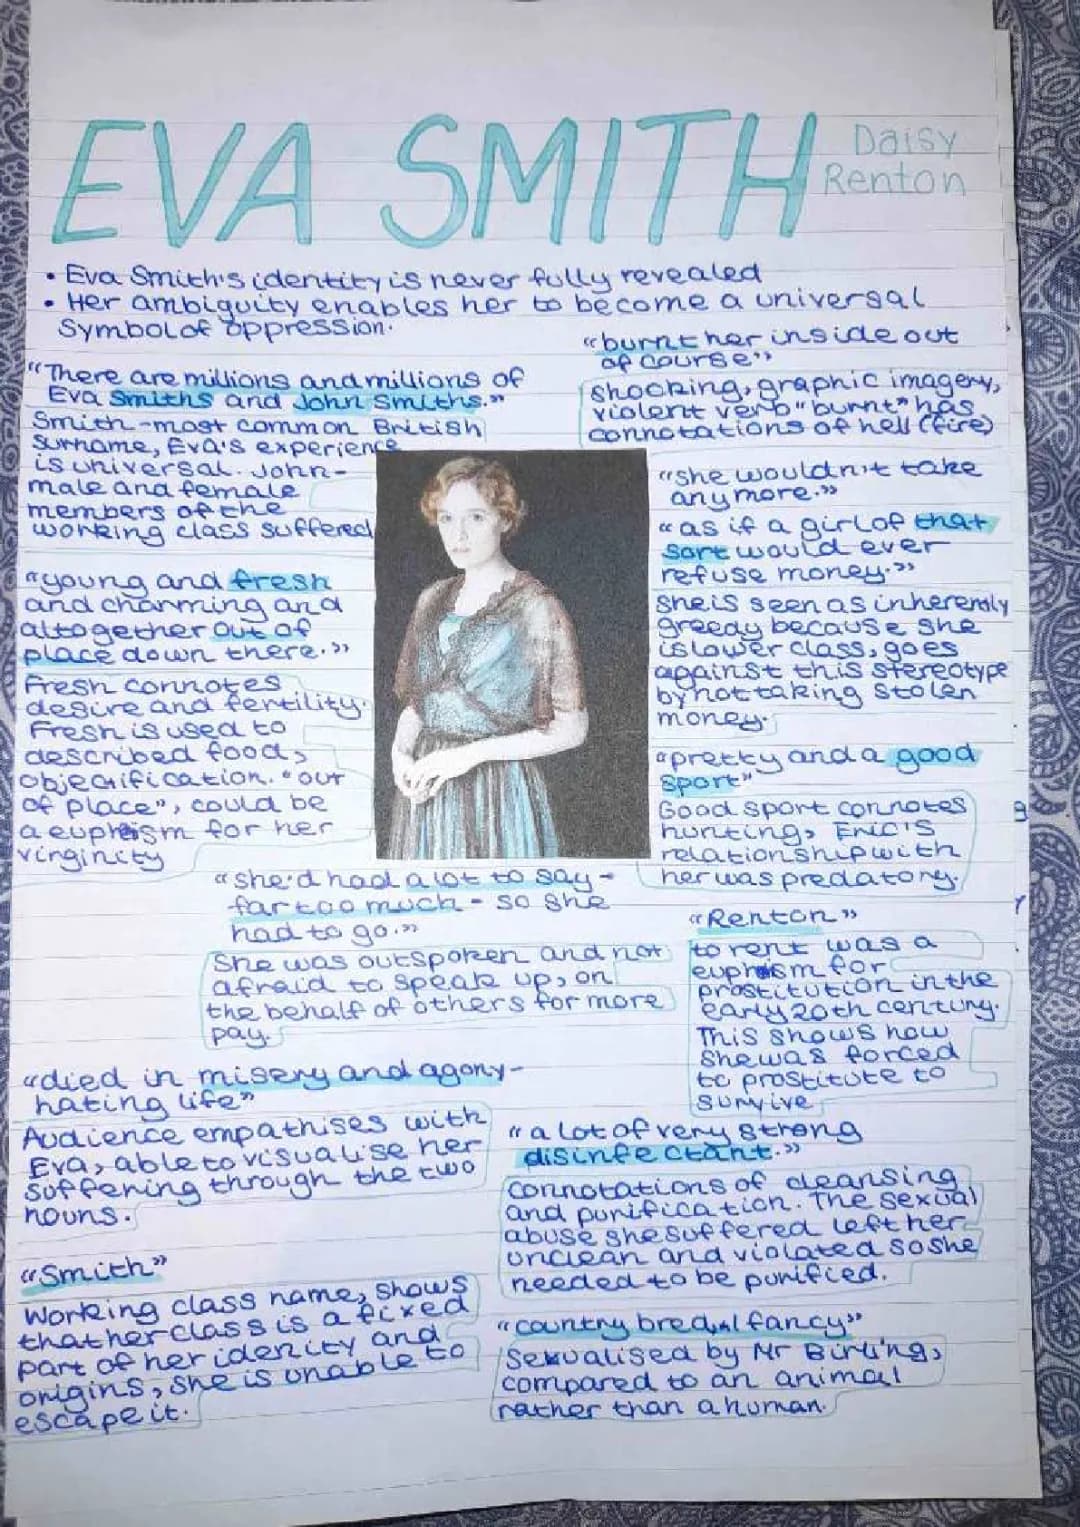 EVA SMITH
Daisy
Renton
• Eva Smith's identity is never fully revealed
• Her ambiguity enables her to become a universal
symbol of oppression.
"There are millions and millions of
Eva Smiths and John Smiths."
Smith - most common British
surname, Eva's experience
is universal. John -
male and female
members of the
working class suffered
"young and fresh
and charming and
altogether out of
place down there."
Fresh connotes
desire and fertility.
Fresh is used to
described food,
objectification. "out
of place", could be
a euphism for her
virginity
"burnt her inside out
of course"
shocking, graphic imagery,
violent verb "burnt" has
connotations of hell (fire)
"she wouldn't take
anymore."
"as if a girl of that
sort would ever
refuse money."
she is seen as inherently
greedy because she
is lower class, goes
against this stereotype
by not taking stolen
money.
"pretty and a good
sport"
Good sport connotes
hunting, Eric's
relationship with
her was predatory.
"she'd had a lot to say -
far too much - so she
had to go."
She was outspoken and not
afraid to speak up, on
the behalf of others for more
pay.
"Renton"
to rent was a
euphism for
prostitution in the
early 20th century.
This shows how
she was forced
to prostitute to
survive
"died in misery and agony -
hating life"
Audience empathises with
Eva, able to visualise her
suffering through the two
nouns.
"a lot of very strong
disinfectant."
connotations of cleansing
and purification. The sexual
abuse she suffered left her
unclean and violated so she
needed to be purified.
"Smith"
Working class name, shows
that her class is a fixed
part of her idenity and
origins, she is unable to
escape it.
"country bred, I fancy"
Sexualised by Mr Birling,
compared to an animal
rather than a human.